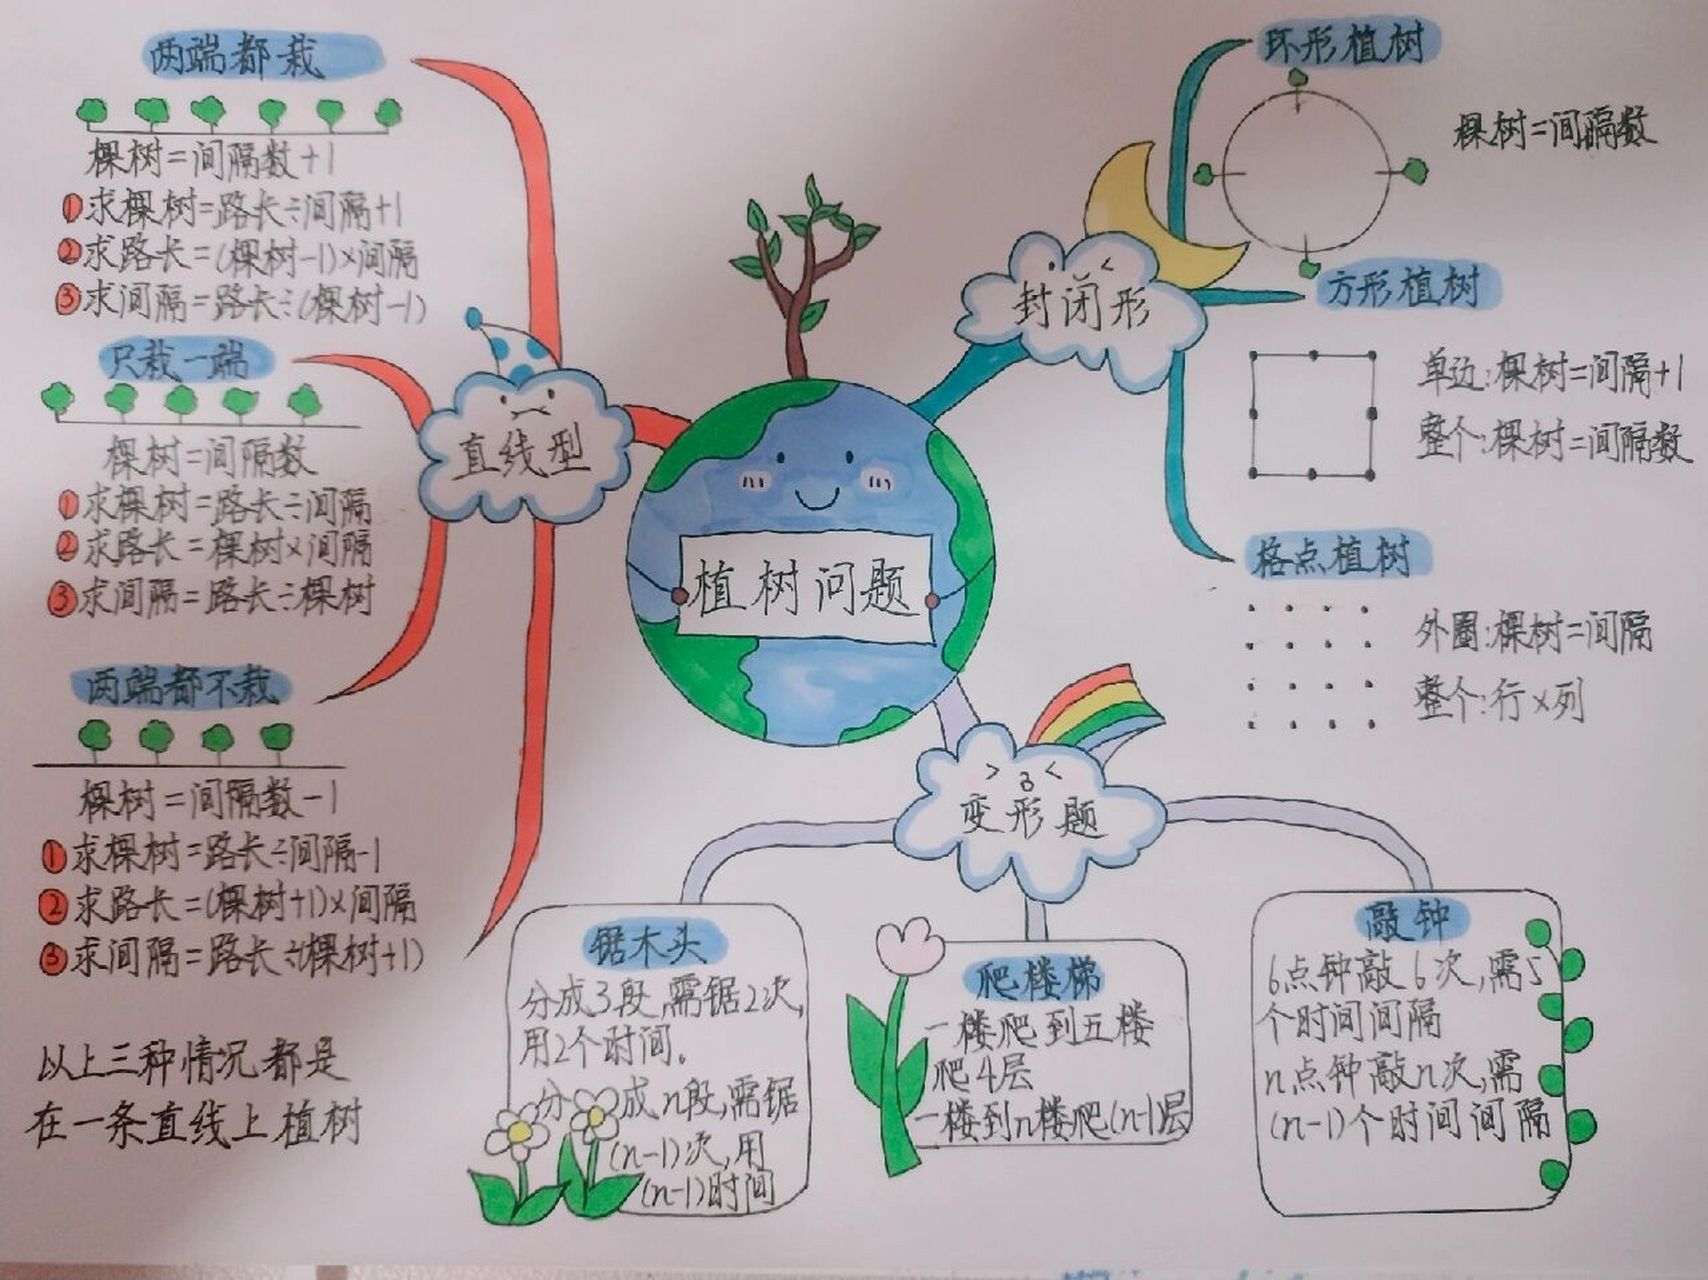 植树问题
直线型
两端都栽
棵树=间隔数+1
①求棵树=路长÷间隔+1
②求路长=(棵树-1)×间隔
③求间隔=路长÷(棵树-1)
只栽一端
棵树=间隔数
①求棵树=路长÷间隔
②求路长=棵树×间隔
③求间隔=路长÷棵树
两端都不栽
棵树=间隔数-1
①求棵树=路长÷间隔-1
②求路长=(棵树+1)×间隔
③求间隔=路长÷(棵树+1)
以上三种情况都是
在一条直线上植树
封闭形
环形植树
棵树=间隔数
方形植树
单边:棵树=间隔+1
整个:棵树=间隔数
格点植树
外圈:棵树=间隔
整个:行×列
变形题
锯木头
分成3段,需锯2次,
用2个时间。
分成n段,需锯
(n-1)次,用
(n-1)时间
爬楼梯
一楼爬到五楼
爬4层
一楼到n楼爬(n-1)层
敲钟
6点钟敲6次,需5
个时间间隔
n点钟敲n次,需
(n-1)个时间间隔